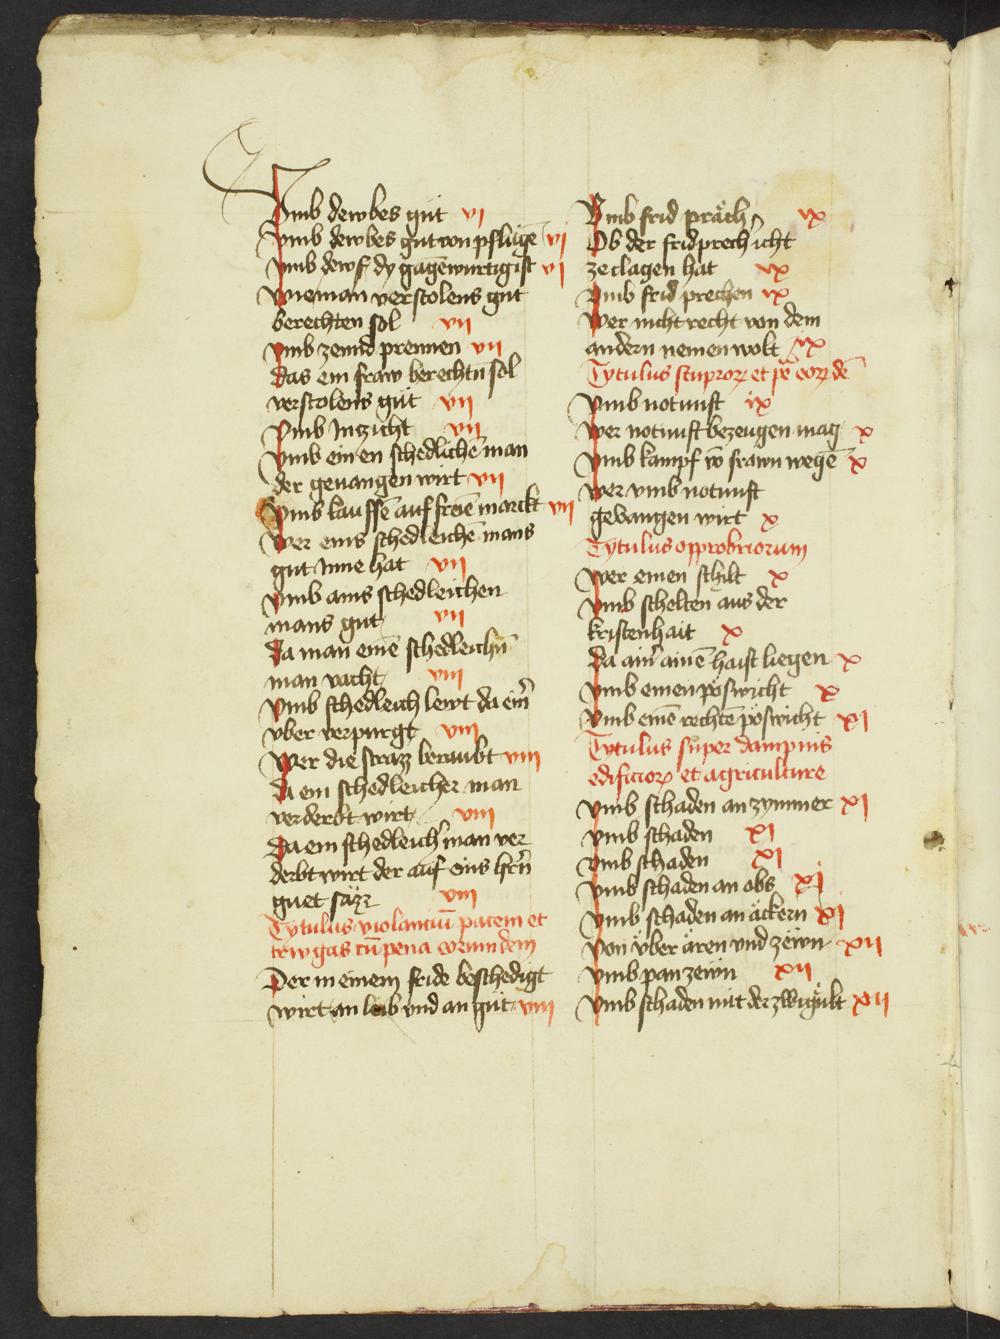 Vmb dewbes gut vi
vmb dewbes gut von pflüge vi
vmb dewf dy gagēwurtig ist vi
wie man verstolens gut
berechten sol vii
vmb zennd prennen vii
das ein fraw berechtn̄ sol
verstolens güt vii
Vmb Inzicht vii
vmb ein en schedlichē man
der geuangen wirt vii
vmb kauffē auf freiē marckt vii
wer eins schedleichē mans
gut Inne hat vii
vmb ains schedleichen
mans gut vii
da man einē schedleichn̄
man vacht viii
vmb schedleich lewt da ein̄
vber verpurgt viii
wer die strazz beraubt viii
da ein schedleicher man
verderbt wirt viii
da ein schedleich man ver
derbt wirt der auf eins hrn̄
guet säzz viii
Tytulus violantiū pacem et
trewgas cū pena eorumdem
Der in einem fride beschedigt
wirt an leib vnd an gut viiii
Vmb frid präch ix
Ob der fridprech icht
ze clagen hat ix
vmb frid prechen ix
wer nicht recht von dem
andern nemen wolt ix
Tytulus stuproꝝ et pē eoꝝdē
vmb notnuft ix
wer notnuft bezeugen mag x
vmb kampf vō frawn wegē x
wer vmb notnuft
geuangen wirt x
Tytulus opprobriorum
wer einen schilt x
vmb schelten aus der
kristenhait x
da ain̄ ainē haist liegen x
vmb einen pöswicht x
vmb einē rechtē pöswicht xi
Tytulus super dampnis
edificioꝝ et agriculture
vmb schaden an zymmer xi
vmb schaden xi
vmb schaden xi
vmb schaden an obs xi
vmb schaden an äckern xi
von vber ären vnd zewn xii
vmb panzewn xii
vmb schaden mit der zwigült xii